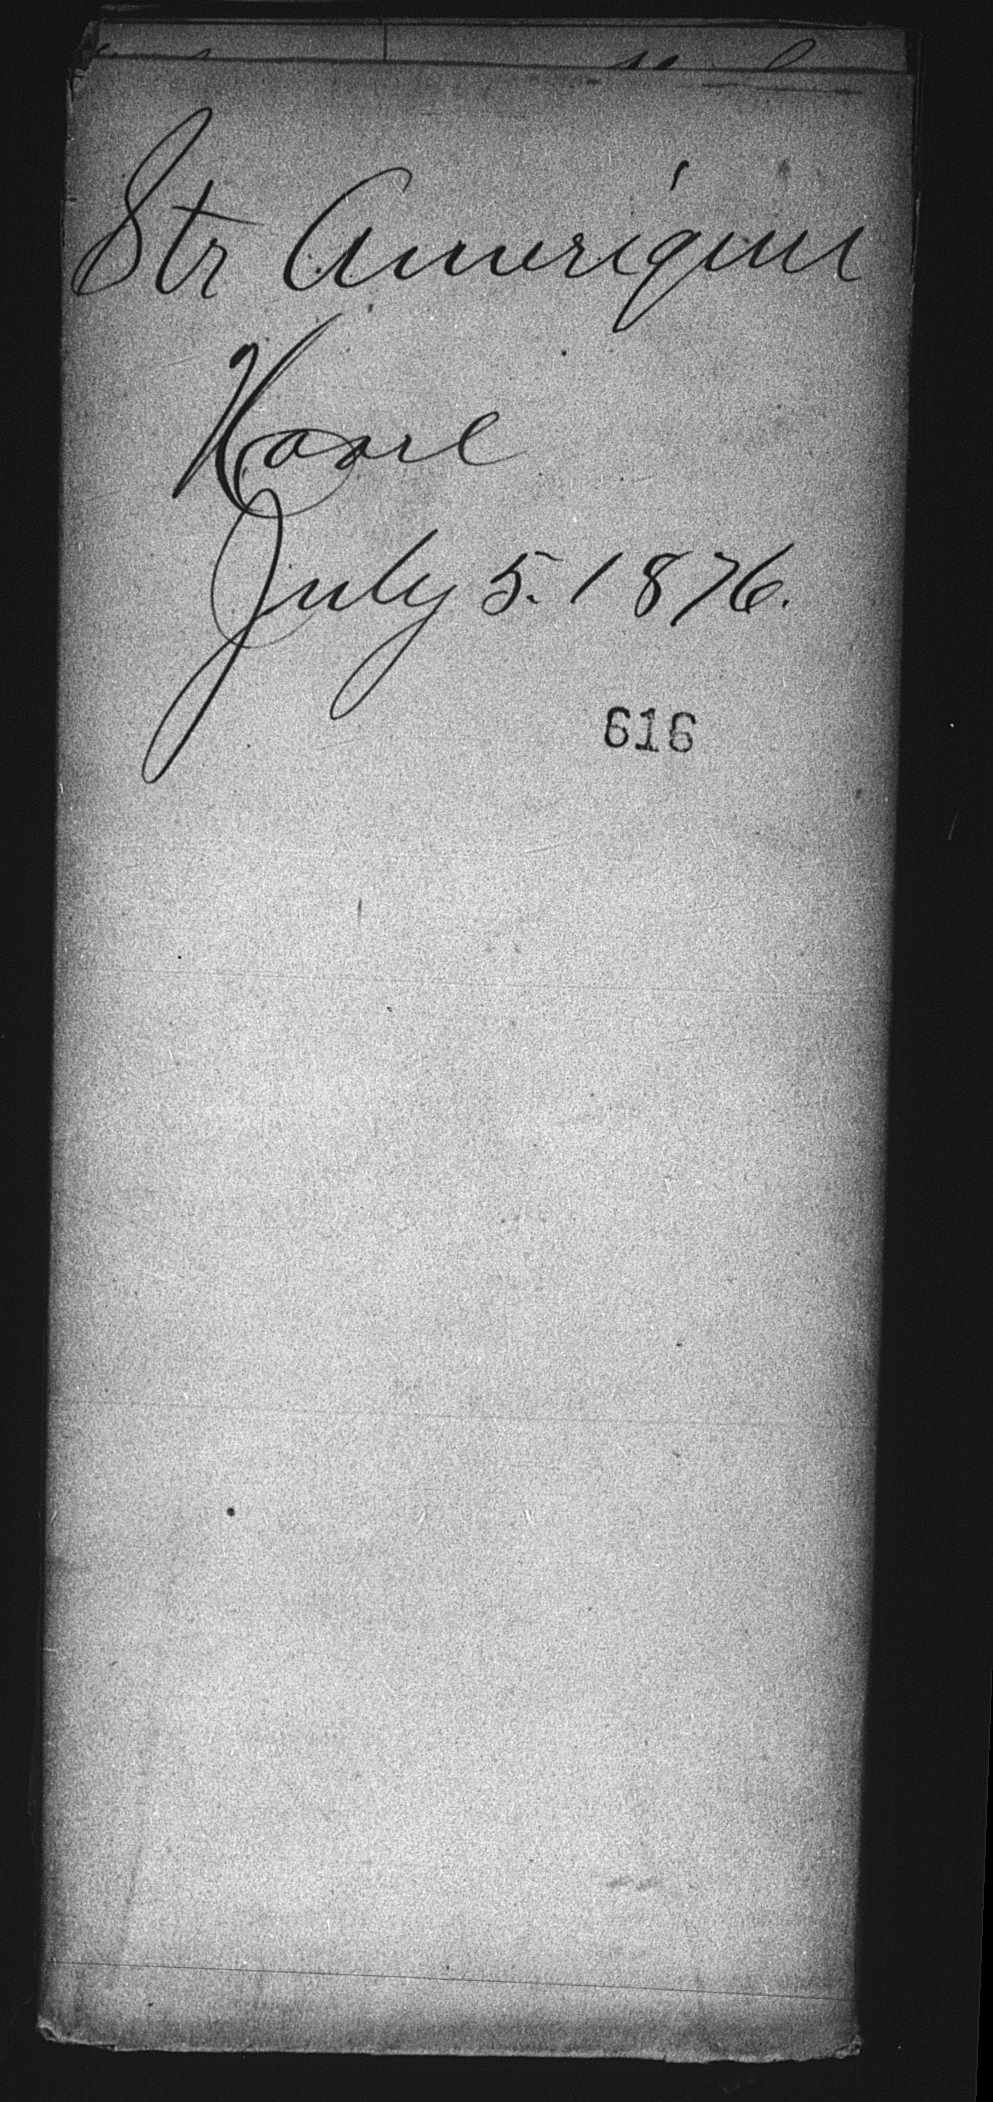 Str Amerique
Havre
July 5. 1876.
616